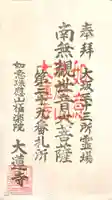 奉拝
大坂三十三所霊場
南無観世音大菩薩
番札所
如意珠應山極楽院
大蓮寺